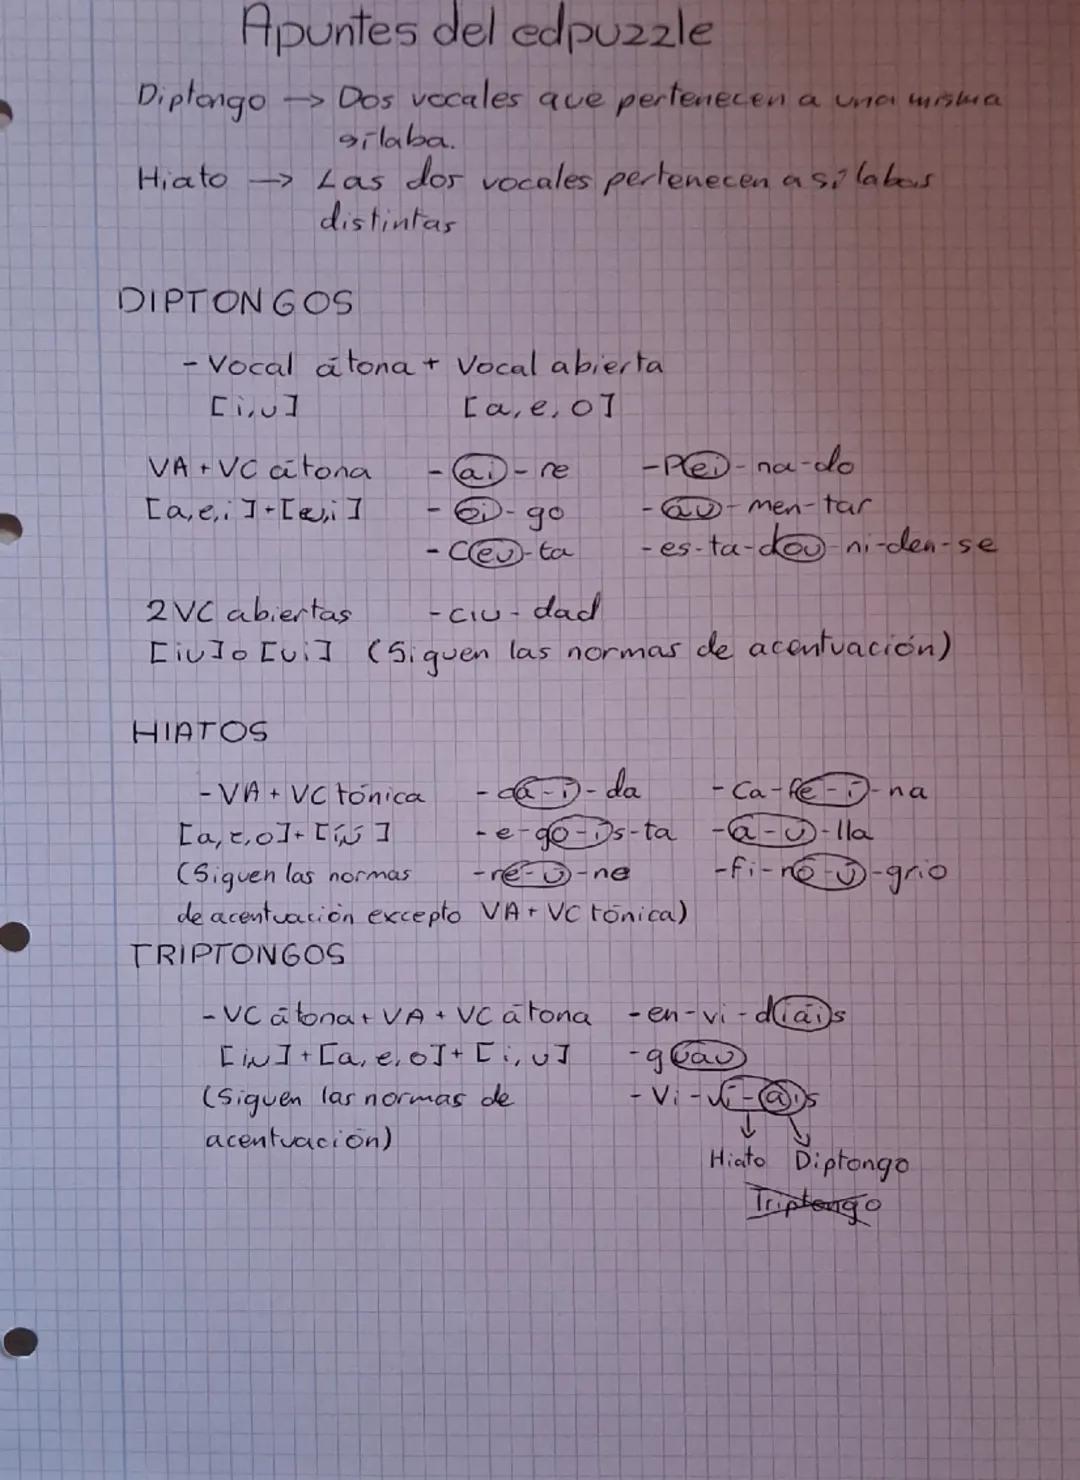 Apuntes del edpuzzle
Diptongo → Dos vocales que pertenecen a una misma
sílaba.
Hiato → Las dos vocales pertenecen a sílabas
distintas
DIPTONGOS
- Vocal átona + Vocal abierta
[i,u] [a,e,o]
VA + VC átona - ai - re - Pei - na - do
[a,e,i] + [u,i] - ei - go - au - men - tar
- Ceu - ta - es - ta - dou - ni - den - se
2 VC abiertas - ciu - dad
[iu] o [ui] (Siguen las normas de acentuación)
HIATOS
- VA + VC tónica - ca - í - da - Ca - fe - í - na
[a,e,o] + [í,ú] - e - go - ís - ta - a - ú - lla
(Siguen las normas - re - ú - ne - fi - no - ú - grio
de acentuación excepto VA + VC tónica)
TRIPTONGOS
- VC átona + VA + VC átona - en - vi - diáis
[i,u] + [a,e,o] + [i,u] - guau
(Siguen las normas de - Vi - ví - ais
acentuación)
Hiato Diptongo
Triptongo